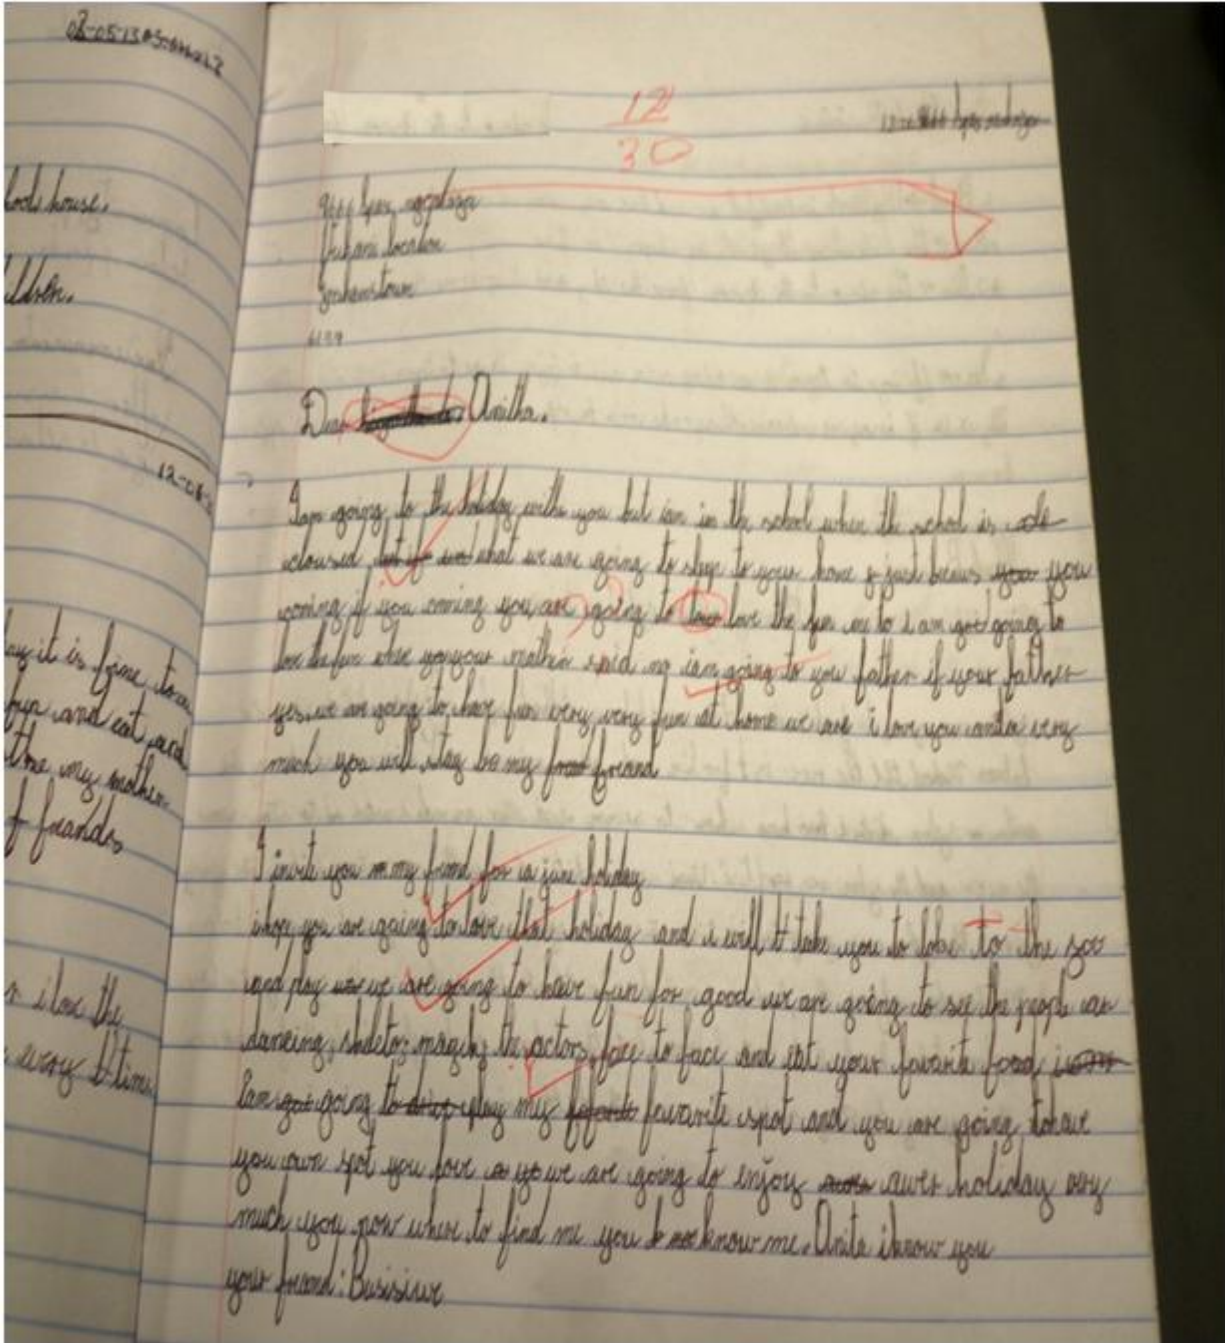 lool house.
ildren.
12-06-
ay it is fime to
fun and eat and
the my mother
f friands,
r i love the
every t time
12
30
location
Dear Anitha.
I am going to the holiday with you but iam in the school when the school is
cloused what we are going to sleep to your home & just becaus you
coming if you coming you are going to love the fun me to i am going to
love the fun your mother said no iam going to you father if your father
yes we are going to have fun very very fun at home we are i love you anita very
much you will stay be my friand
I invite you my friend for a june holiday
i hope you are going to love that holiday and i will take you to to the zoo
and play we are going to have fun for good we are going to see the peopl
dancing, the actors, face to face and eat your favarite food
I am going to play my favarite spot and you are going to have
you own spot you love we are going to enjoy awer holiday very
much you now where to find me you know me. Anita i know you
your friand: Busisiwe